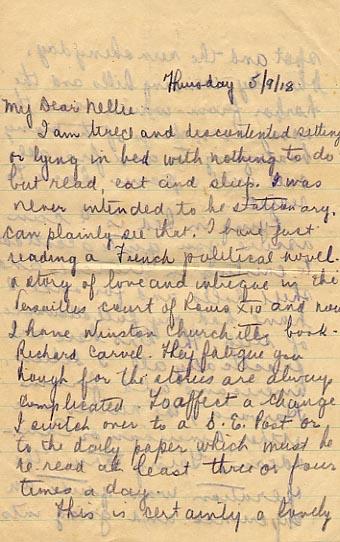 Thursday 5/9/18.
My Dear Nellie
I am tired and discontented sitting
or lying in bed with nothing to do
but read, eat and sleep. I was
never intended to be stationary.
can plainly see that. I have just
reading a French political novel.
a story of love and intrigue in the
Versailles court of Louis XIV and now
I have Winston Churchills book-
Richard Carvel. They fatigue you
though for the stories are always
complicated. To affect a change
I switch over to a S. E. Post or
to the daily paper which must be
re-read at least three or four
times a day.
This is certainly a lovely